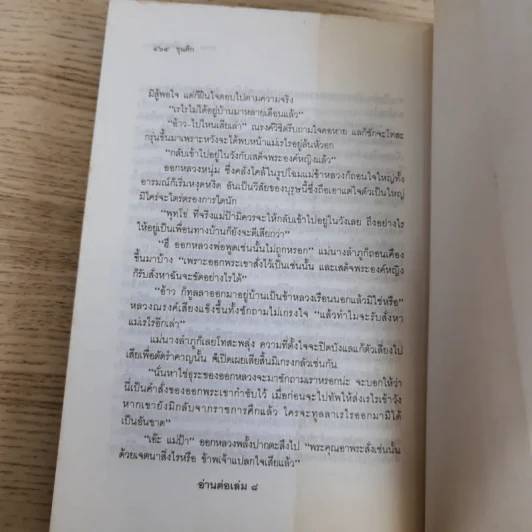 ๔๖๔ ขุนศึก
มิสู้พอใจ แต่ก็ฝืนใจตอบไปตามความจริง
"เรไรไม่ได้อยู่บ้านมาหลายเดือนแล้ว"
"อ้าว–ไปไหนเสียเล่า" ณรงค์วิชิตรีบถามใจคอหาย แลก็ชักจะโทสะ
กรุ่นขึ้นมาเพราะหวังจะได้พบหน้าแม่เรไรอยู่ล้นหัวอก
"กลับเข้าไปอยู่ในวังกับเสด็จพระองค์หญิงแล้ว"
ออกหลวงหนุ่ม ซึ่งคลั่งไคล้ในรูปโฉมแม่ข้าหลวงก็ถอนใจใหญ่ทั้ง
อารมณ์ก็เริ่มหงุดหงิด อันเป็นวิสัยของบุรุษนี้ซึ่งถือเอาแต่ใจตัวเป็นใหญ่
มิใคร่จะไตร่ตรองการใดนัก
"พุทโธ่ ที่จริงแม่ป้ามิควรจะให้กลับเข้าไปอยู่ในวังเลย ถึงอย่างไร
ให้อยู่เป็นเพื่อนทางบ้านก็ยังจะดีเสียกว่า"
"ฮื่อ ออกหลวงพ่อพูดเช่นนั้นไม่ถูกหรอก" แม่นางลำภูก็ถอนเคือง
ขึ้นมาบ้าง "เพราะออกพระเขาสั่งไว้เป็นเช่นนั้น และเสด็จพระองค์หญิง
ก็รับสั่งหาฉันจะขัดอย่างไรได้"
"อ้าว ก็ทูลลาออกมาอยู่บ้านเป็นข้าหลวงเรือนนอกแล้วมิใช่หรือ"
หลวงณรงค์เสียงแข็งขึ้นทั้งซักถามไม่เกรงใจ "แล้วทำไมจะรับสั่งหา
แม่เรไรอีกเล่า"
แม่นางลำภูก็เลยโทสะพลุ่ง ความที่ตั้งใจจะปิดบังแลแก้ตัวเสี่ยงไป
เสียเพื่อตัดรำคาญนั้น ก็เปิดเผยเสียสิ้นมิเกรงกลัวเช่นกัน
"นั่นหาใช่ธุระของออกหลวงจะมาซักถามเราหรอกน่ะ จะบอกให้ว่า
นี่เป็นคำสั่งของออกพระเขากำชับไว้ เมื่อก่อนจะไปทัพให้ส่งเรไรเข้าวัง
หากเขายังมิกลับจากราชการศึกแล้ว ใครจะทูลลาเรไรออกมามิได้
เป็นอันขาด"
"เอ๊ะ แม่ป้า" ออกหลวงพลั้งปากตะลึงไป "พระคุณอาพระสั่งเช่นนั้น
ด้วยเจตนาสิ่งไรหรือ ข้าพเจ้าแปลกใจเสียแล้ว"
อ่านต่อเล่ม ๘